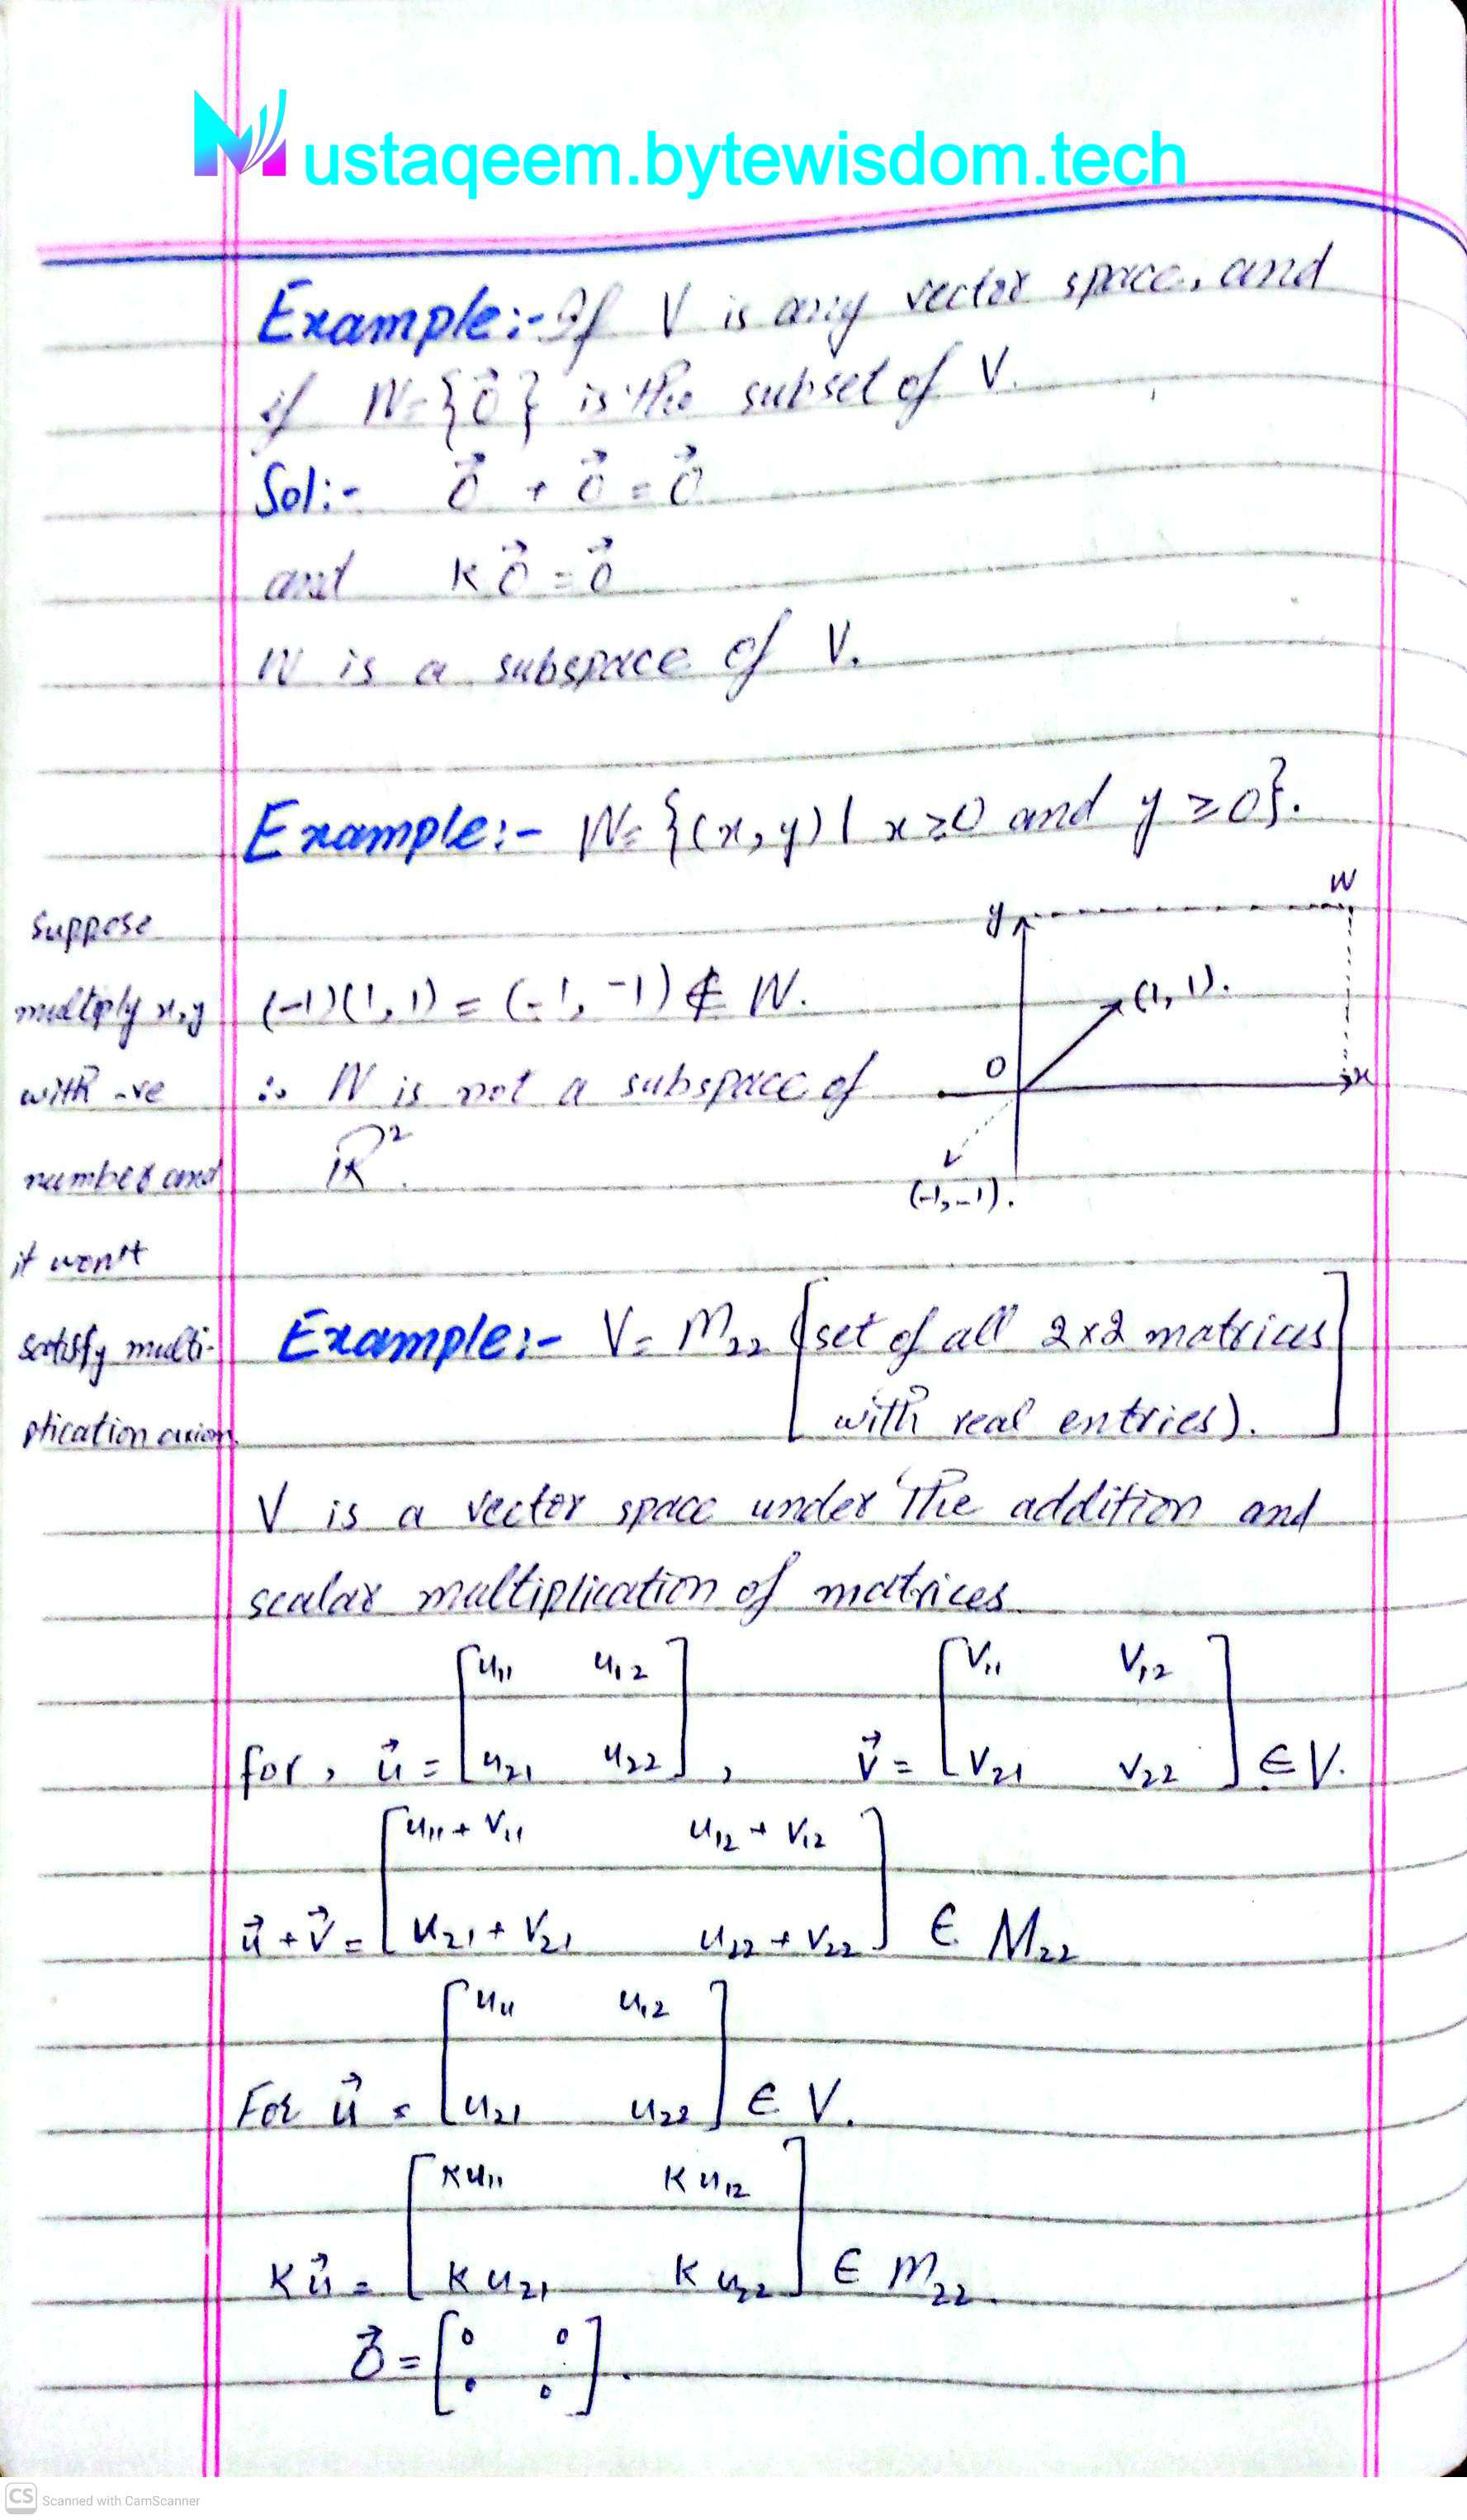 Mustaqeem.bytewisdom.tech
Example:- If V is any vector space, and
if W = {0⃗} is the subset of V.
Sol:- 0⃗ + 0⃗ = 0⃗
and K0⃗ = 0⃗
W is a subspace of V.
Example:- W = {(x, y) | x ≥ 0 and y ≥ 0}.
Suppose
multiply x, y
with -ve
number and
it won't
satisfy multi-
plication axiom.
(-1)(1, 1) = (-1, -1) ∉ W.
∴ W is not a subspace of
ℝ².
y
W
(1, 1).
0
x
(-1, -1).
Example:- V = M₂₂ [set of all 2x2 matrices
with real entries).]
V is a vector space under the addition and
scalar multiplication of matrices.
[u₁₁ u₁₂] [v₁₁ v₁₂]
for, u⃗ = [u₂₁ u₂₂], v⃗ = [v₂₁ v₂₂] ∈ V.
[u₁₁ + v₁₁ u₁₂ + v₁₂]
u⃗ + v⃗ = [u₂₁ + v₂₁ u₂₂ + v₂₂] ∈ M₂₂
[u₁₁ u₁₂]
For u⃗ = [u₂₁ u₂₂] ∈ V.
[Ku₁₁ Ku₁₂]
Ku⃗ = [Ku₂₁ Ku₂₂] ∈ M₂₂.
0⃗ = [0 0
0 0].
CS Scanned with CamScanner